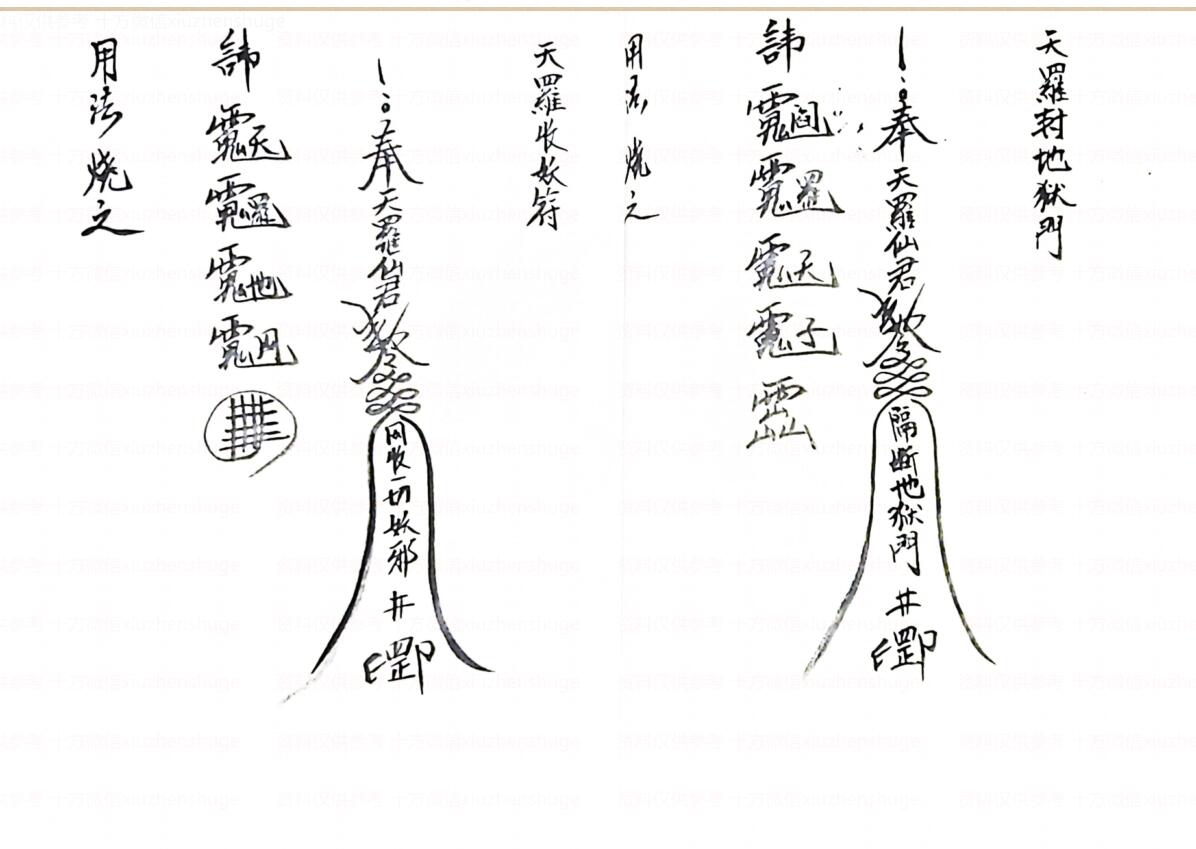 天羅封地獄門
奉天羅仙君敕
隔断地獄門井罡印
諱
用法燒之
天羅收妖符
奉天羅仙君敕
网收一切妖邪井罡印
諱
用法燒之
资料仅供参考 十方微信xiuzhenshuge